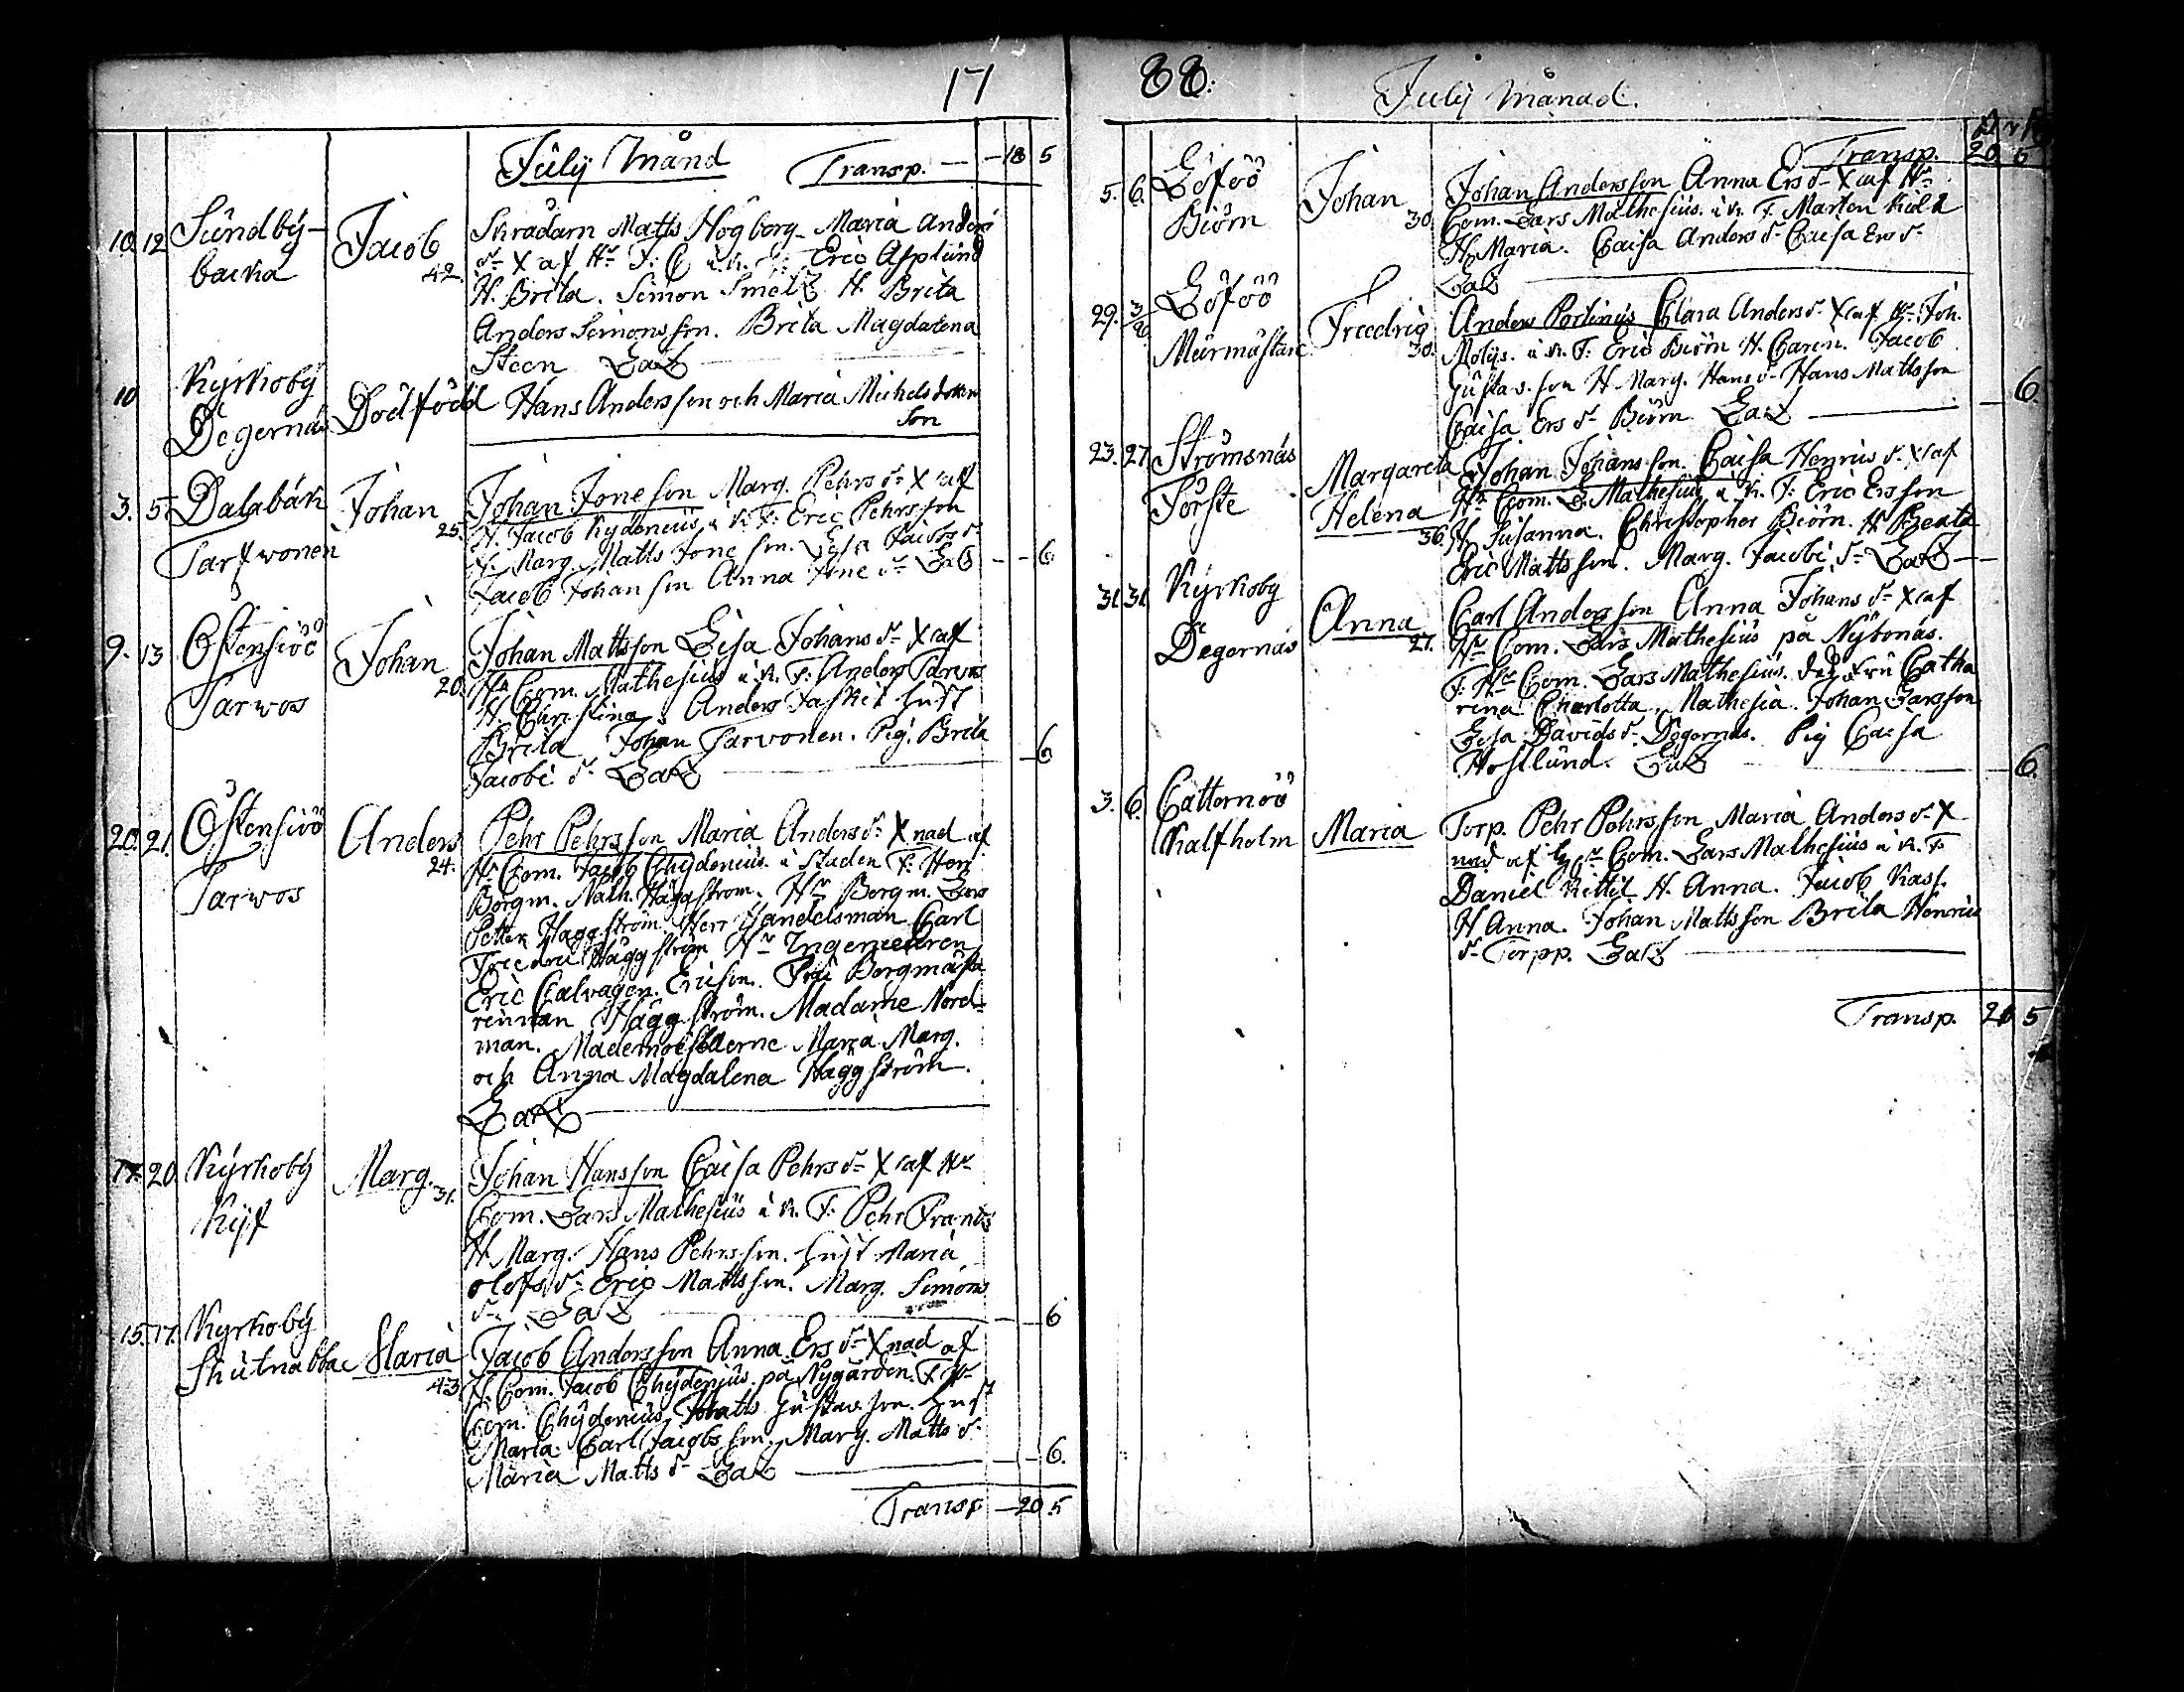 17
July Månd Transp. — 18 5
10. 12 Sundby-
backa
Jacob
42.
Skrädarn Matts Högberg Maria Anders
dr X af Hr F: Eric Asplund
H. Brita. Simon Smeltz H. Brita
Anders Simonsson. Brita Magdalena
Steen
10 Kyrkoby
Degernäs
Dödfödd Hans Andersson och Maria Michelsdotters
son
3. 5. Dalabäck
Tarfwonen
Johan
25.
Johan Joneson Marg. Pehrs dr X af
H. Jacob Kydenius i K. F: Eric Pehrsson
H. Marg. Matts Joneson. Lisa Jacobs dr
Jacob Johanson Anna Jone dr — 6.
9. 13 Östensiöö
Tarwos
Johan
20.
Johan Mattsson Lisa Johans dr X af
Hr Com. Mathesius i K. F: Anders Tarwos
H. Christina. Anders hust
Brita Johan Tarvonen. Pig. Brita
Jacobi dr — 6
20. 21. Östensiö
Tarwos
Anders
24.
Pehr Pehrsson Maria Anders dr X nad af
Hr Com. Jacob Chydenius i Staden F: Herr
Borgm. Nath. Häggström. Hr Borgm. Lars
Petter Häggström. Herr Handelsman Carl
Friedric Häggström Hr Ingenieuren
Eric Calvagen Ericson. Fru Borgmästa
rinnan Häggström. Madame Nord-
man. Mademoisellerne Maria Marg.
och Anna Magdalena Häggström.
17. 20 Kyrkoby
Kyf
Marg.
31.
Johan Hansson Caisa Pehrs dr X af Hr
Com. Lars Mathesius i K. F. Pehr Frants
H. Marg. Hans Pehrsson. hust Maria
Olofs dr Eric Mattsson. Marg. Simons
dr — 6
15. 17. Kyrkoby
Skutnabba
Maria
43
Jacob Andersson Anna Ers dr X nad af
H. Com. Jacob Chydenius på Nygården. F. Hr
Com. Chydenius, Matts Gustavson. Hust
Maria. Carl Jacobsson. Marg. Matts dr
Maria Matts dr — 6.
Transp — 20 5
88.
July Månad.
Transp. 20 5
5. 6. Löföö
Biörn
Johan
30.
Johan Andersson Anna Ers dr X af Hr
Com. Lars Mathesius. i K. F. Mårten
H. Maria. Caisa Anders dr Caisa Ers dr
29. 3/20 Löföö
Murmästare
Friedrig
30.
Anders Portinus Clara Anders dr X af Hr Joh.
i K. F: Eric Biörn H. Caren. Jacob
Gustavson H Marg. Hans dr Hans Mattsson
Caisa Ers dr Biörn — 6.
23. 27 Strömsnäs
Förste
Margareta
Helena
36.
Johan Johansson. Caisa Henrics dr X af
Hr Com. L. Mathesius i K. F: Eric Ersson
H Susanna. Christopher Biörn. H Beata
Eric Mattsson. Marg. Jacobi dr
31. 31. Kyrkoby
Degernäs
Anna
27.
Carl Andersson Anna Johans dr X af
Hr Com. Lars Mathesius på Nybonäs.
F: Hr Com. Lars Mathesius. dess Fru Catha
rina Charlotta Mathesia. Johan Larsson
Lisa Davids dr Degernäs. Pig Caisa
Höstlund. — 6.
3. 6. Catternöö
Kalfholm
Maria
Torp. Pehr Pehrsson Maria Anders dr X
nad af Hr Com. Lars Mathesius i K. F
Daniel Kittil H. Anna. Jacob Kass.
H Anna. Johan Mattsson Brita Henrics
dr Torpp.
Transp. 21 5